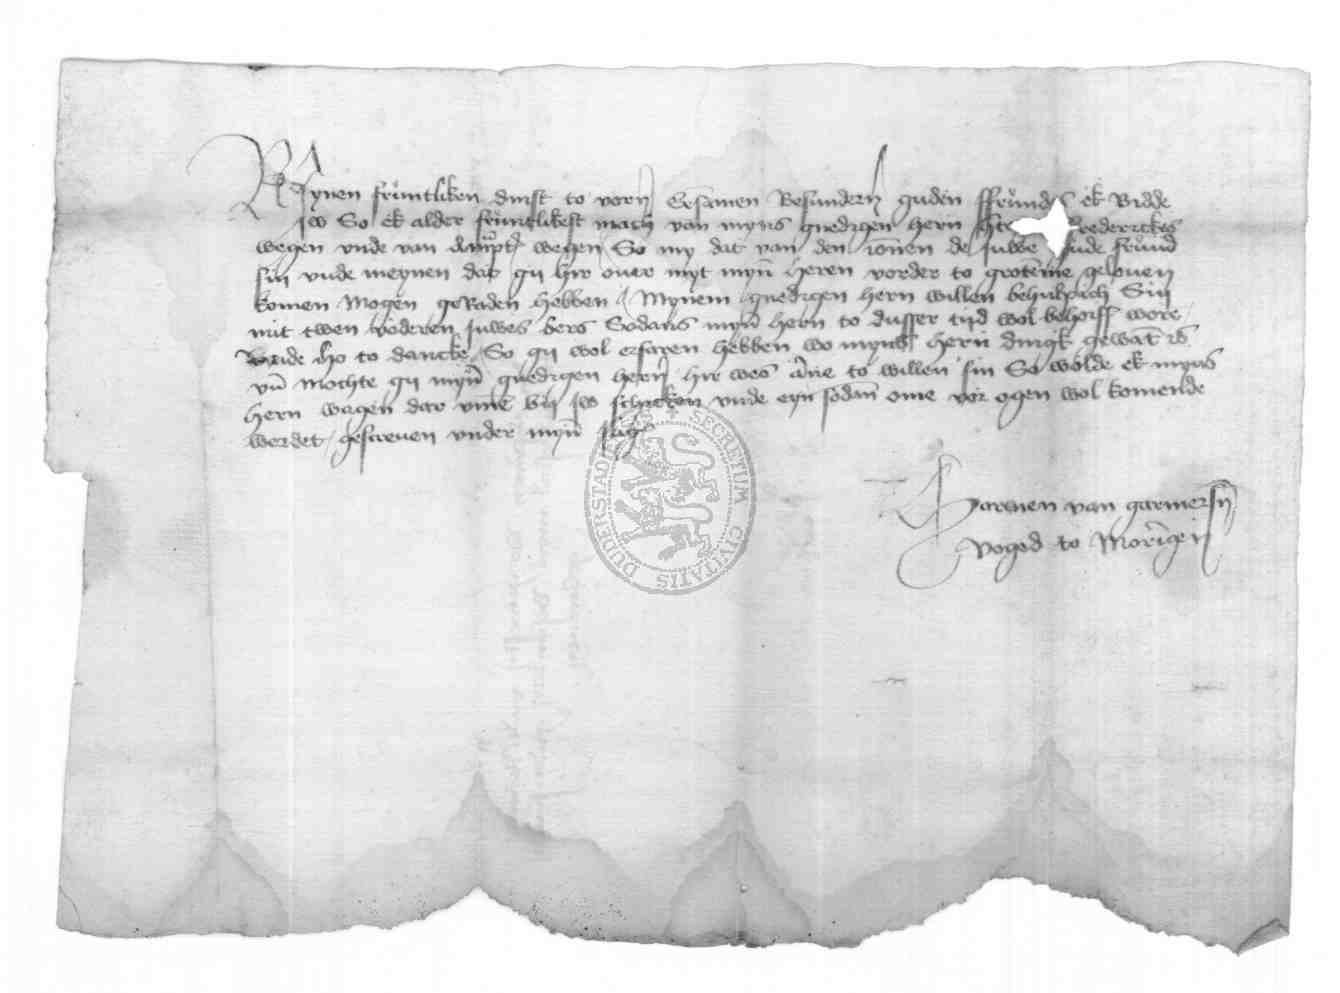 Mynen fruntliken dinst to vorn Ersamen Besundern guden ffrunde ek Bidde
Jw So ek alder fruntlikest mach van myns gnedigen hern her frederickes
wegen vnde van wegen So my dat van den de Juwe gude frund
sin vnde meynen dat gy hir ouer myt myn heren vorder to geloven
komen Mogen geRaden hebben Mynem gnedigen hern willen behulplich Sin
mit twen voderen Juwes bers Sodans myn hern to dusser tyd wol behoff were
vnde to dancke So gy wol erfaren hebben wo myns hern dingk gewant is
vn Mochte gy myn gnedigen hern hir wes ane to willen sin So wolde ek myns
hern wagen dar vme by Jw schicken vnde eyn sodan ome vor ogen wol komende
werdet gescreuen vnder myn
van
voged to Moringen
SECRETUM CIVITATIS DUDERSTAD